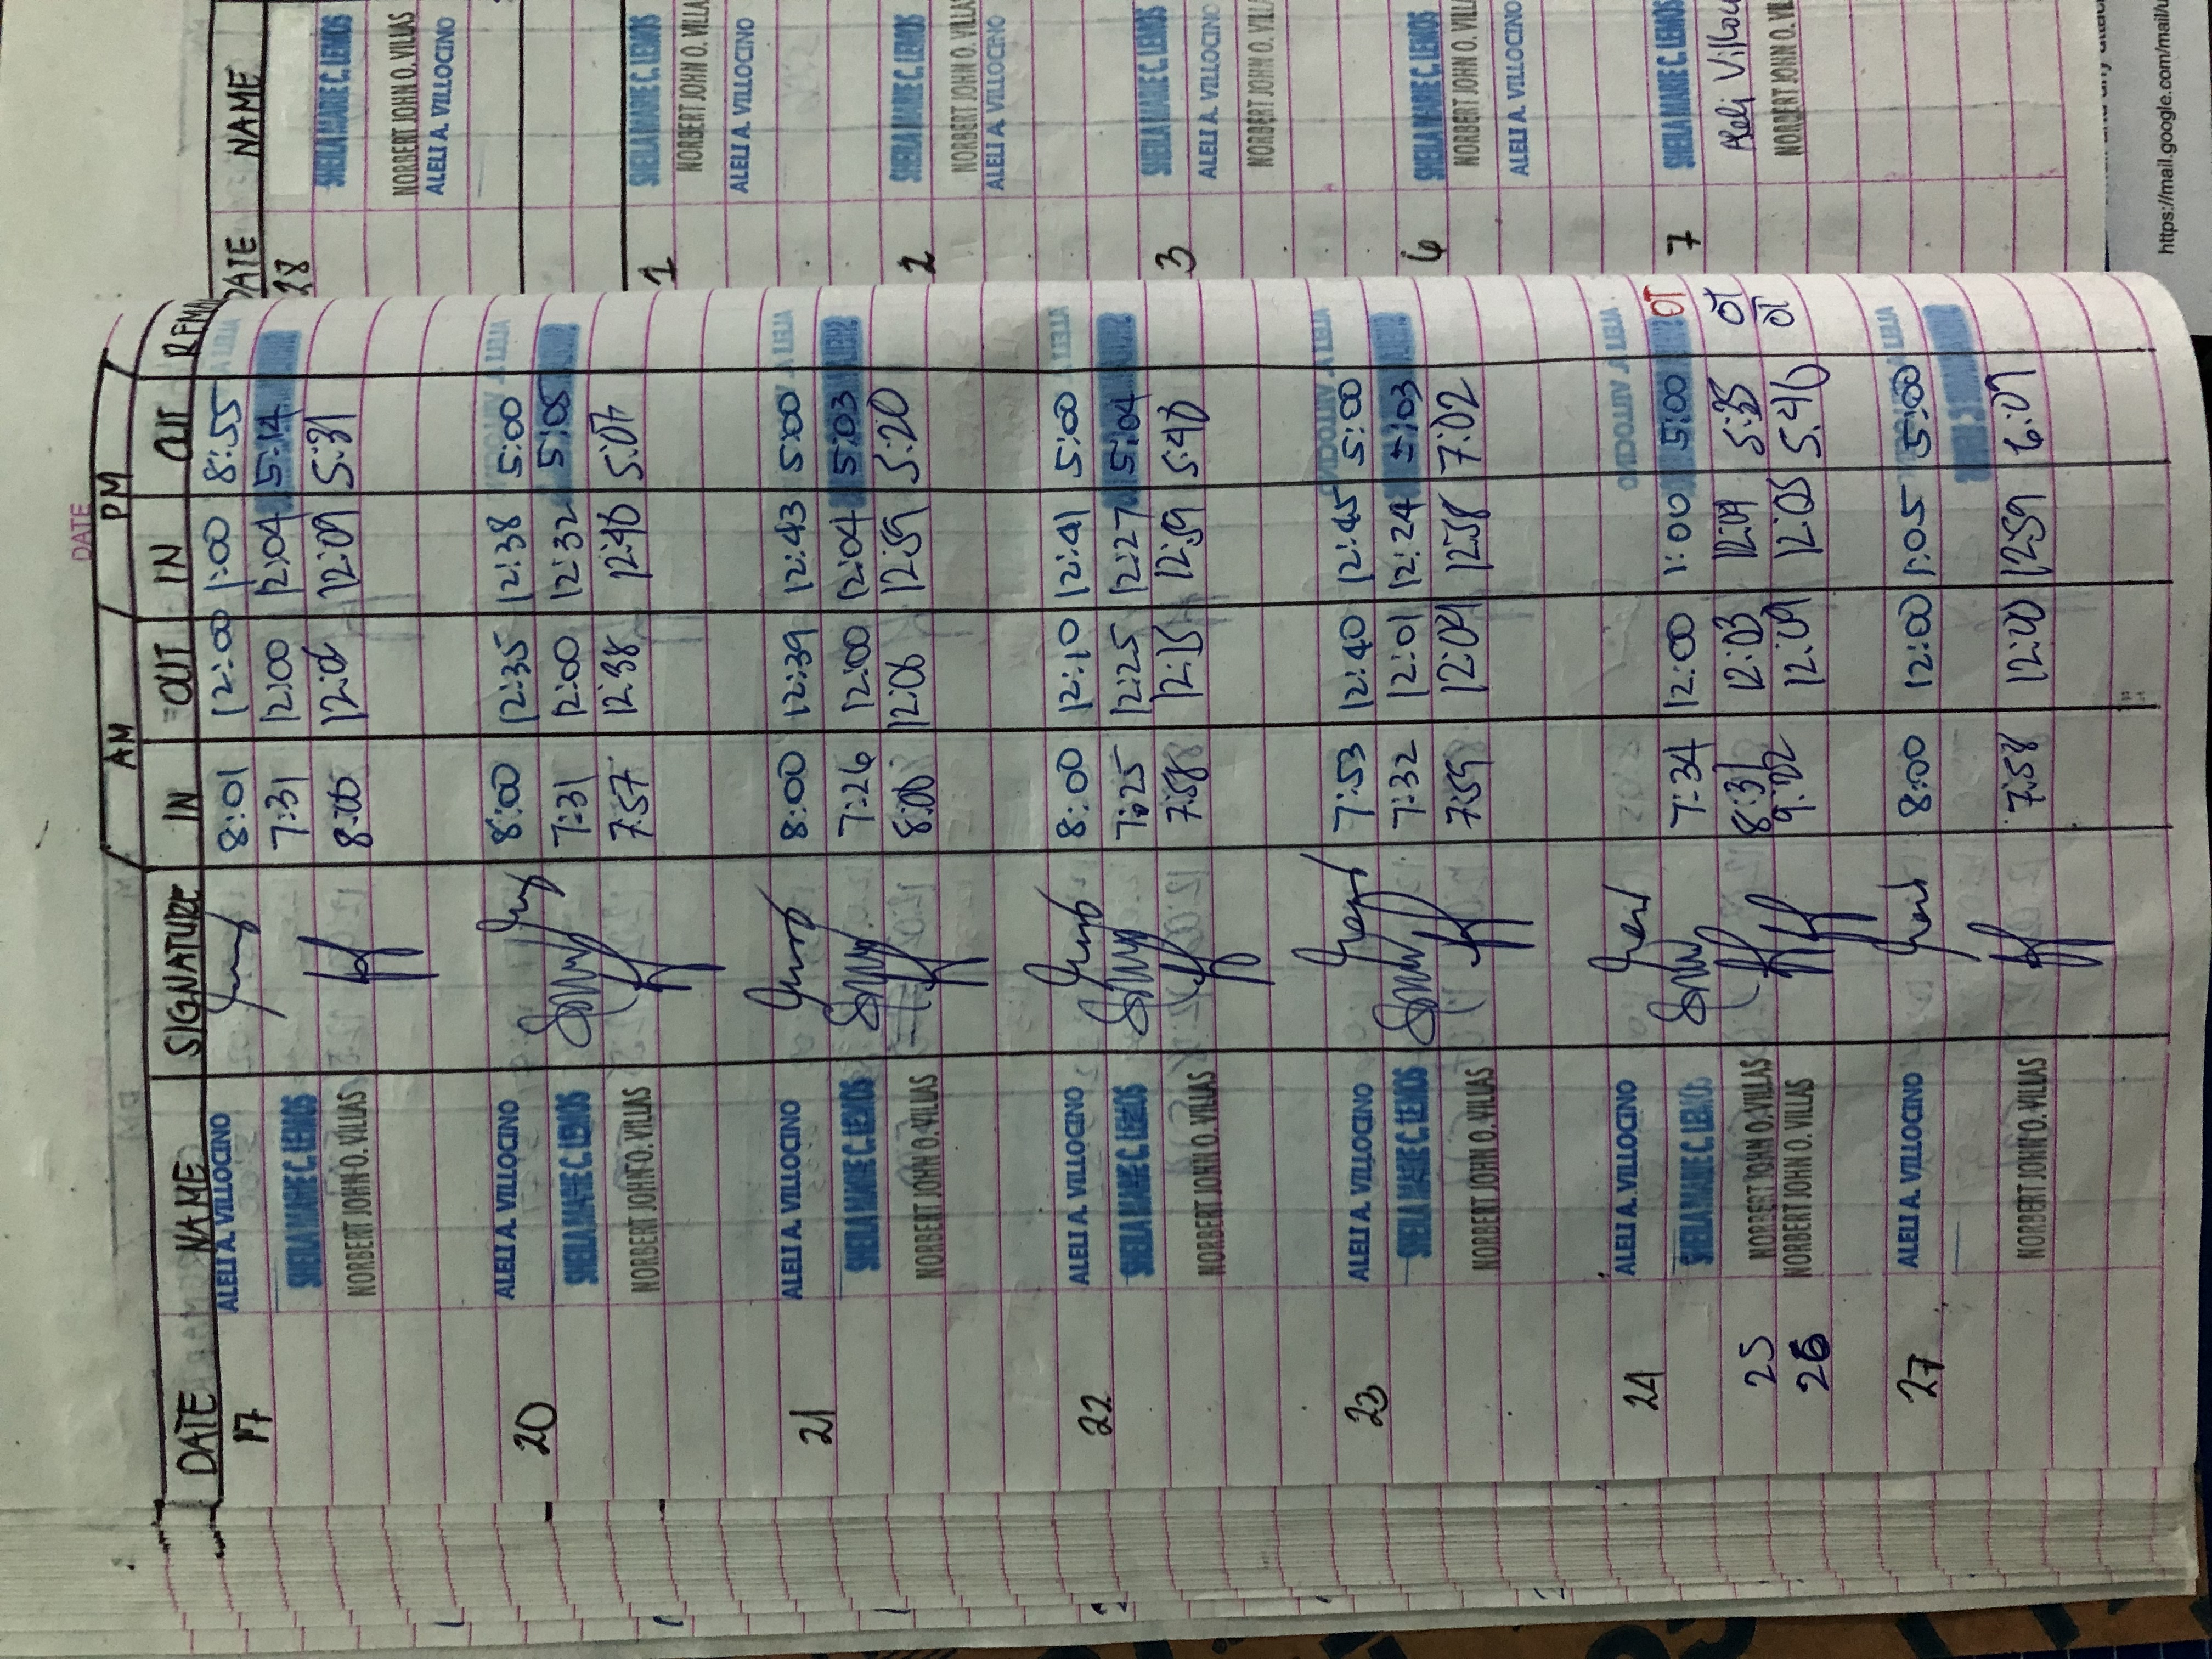 DATE
AM PM
DATE NAME SIGNATURE IN OUT IN OUT
17 ALELI A. VILLOCINO 8:01 12:00 1:00 8:55
SHEILA MARIE C. LEMOS 7:31 12:00 12:04 5:14
NORBERT JOHN O. VILLAS 8:00 12:31
20 ALELI A. VILLOCINO 8:00 12:35 12:38 5:00
SHEILA MARIE C. LEMOS 7:31 12:00 12:32 5:05
NORBERT JOHN O. VILLAS 7:57 12:38 12:40 5:07
21 ALELI A. VILLOCINO 8:00 12:39 12:43 5:00
SHEILA MARIE C. LEMOS 7:26 12:00 12:04 5:03
NORBERT JOHN O. VILLAS 8:00 12:06 12:59 5:20
22 ALELI A. VILLOCINO 8:00 12:10 12:41 5:00
SHEILA MARIE C. LEMOS 7:25 12:25 12:27 5:04
NORBERT JOHN O. VILLAS 7:58 12:15 12:59 5:40
23 ALELI A. VILLOCINO 7:53 12:40 12:45 5:00
SHEILA MARIE C. LEMOS 7:32 12:01 12:24 5:03
NORBERT JOHN O. VILLAS 7:59 12:04 12:58 7:02
24 ALELI A. VILLOCINO
SHEILA MARIE C. LEMOS 7:34 12:00 1:00 5:00 OT
25 NORBERT JOHN O. VILLAS 8:31 12:03 12:09 5:35 OT
26 NORBERT JOHN O. VILLAS 9:02 12:09 5:46 OT
27 ALELI A. VILLOCINO 8:00 12:00 1:05 5:00
NORBERT JOHN O. VILLAS 7:58 12:40 12:59 6:07
DATE NAME
28 SHEILA MARIE C. LEMOS
NORBERT JOHN O. VILLAS
ALELI A. VILLOCINO
1 SHEILA MARIE C. LEMOS
NORBERT JOHN O. VILLAS
ALELI A. VILLOCINO
2 SHEILA MARIE C. LEMOS
NORBERT JOHN O. VILLAS
ALELI A. VILLOCINO
3 SHEILA MARIE C. LEMOS
ALELI A. VILLOCINO
NORBERT JOHN O. VILLA
4 SHEILA MARIE C. LEMOS
NORBERT JOHN O. VILL
ALELI A. VILLOCINO
7 SHEILA MARIE C. LEMOS
Aleli
NORBERT JOHN O. VIL
https://mail.google.com/mail/u